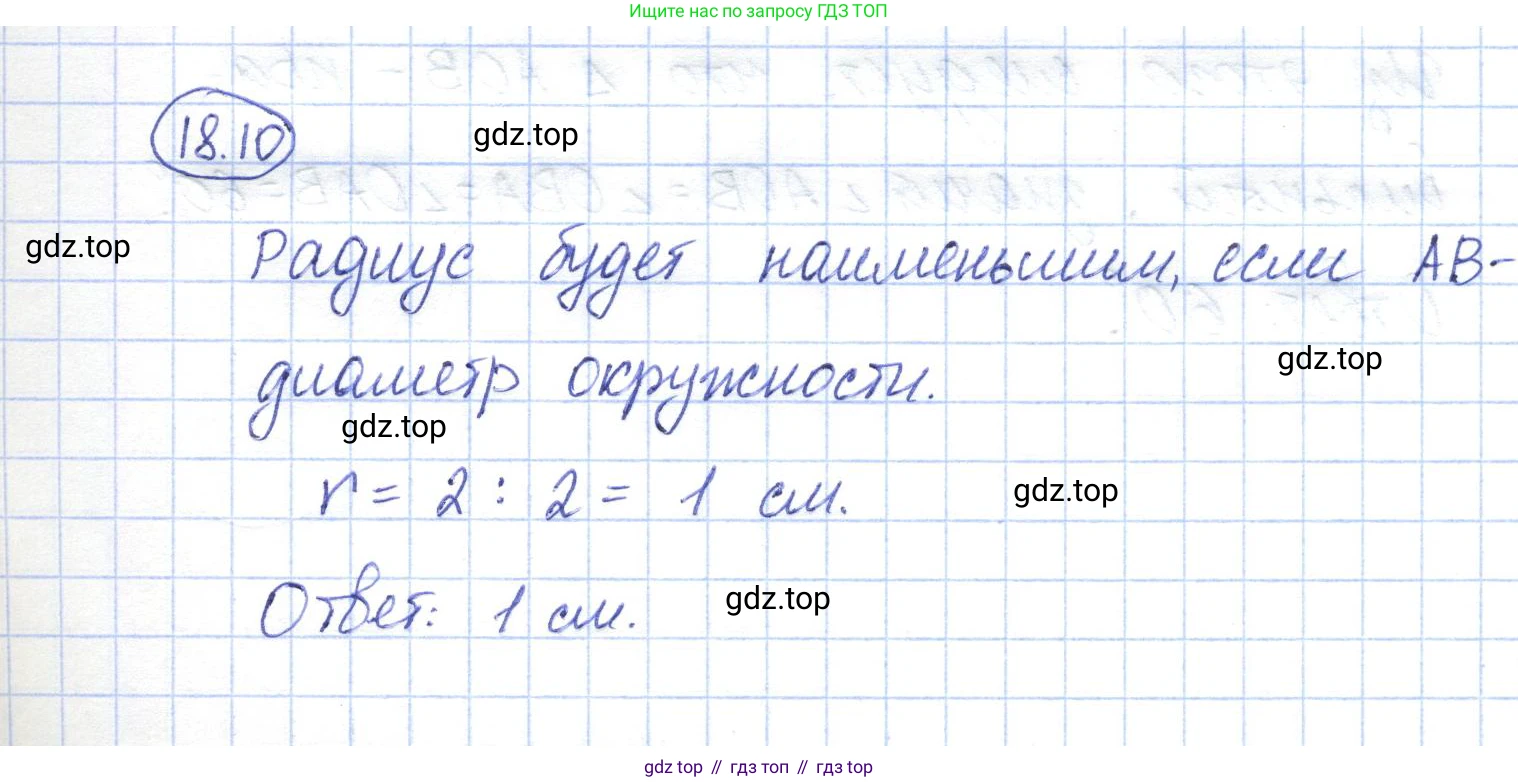 Ищите нас по запросу ГДЗ ТОП
18.10
gdz.top
gdz.top
Радиус будет наименьшим, если AB-
gdz.top
диаметр окружности.
gdz.top
r = 2 : 2 = 1 см.
gdz.top
Ответ: 1 см.
gdz.top
gdz top // гдз топ // gdz top